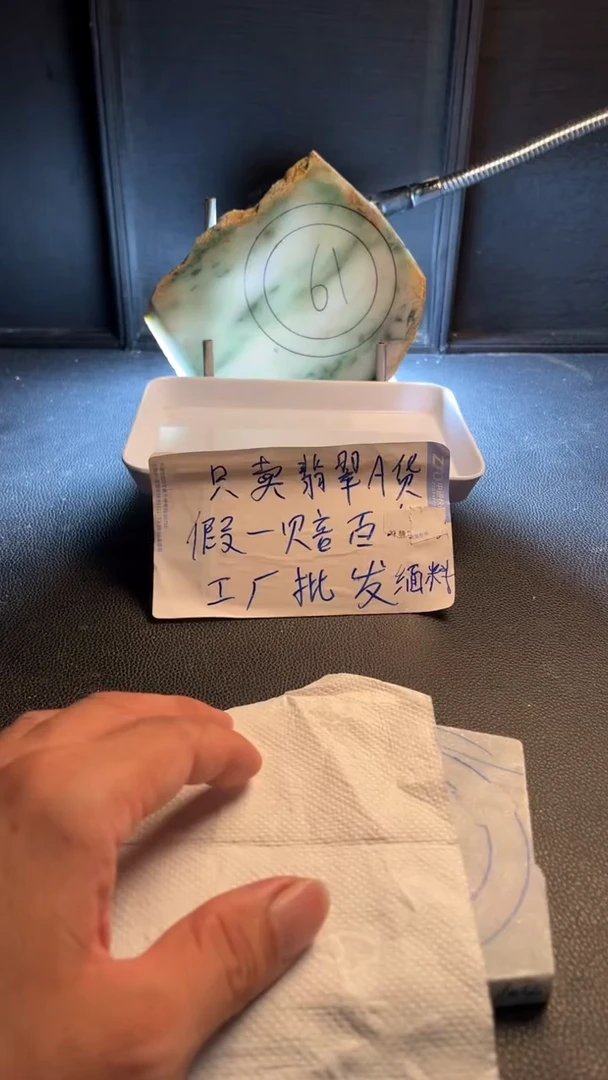 61
只卖翡翠A货
假一赔百
工厂批发缅料